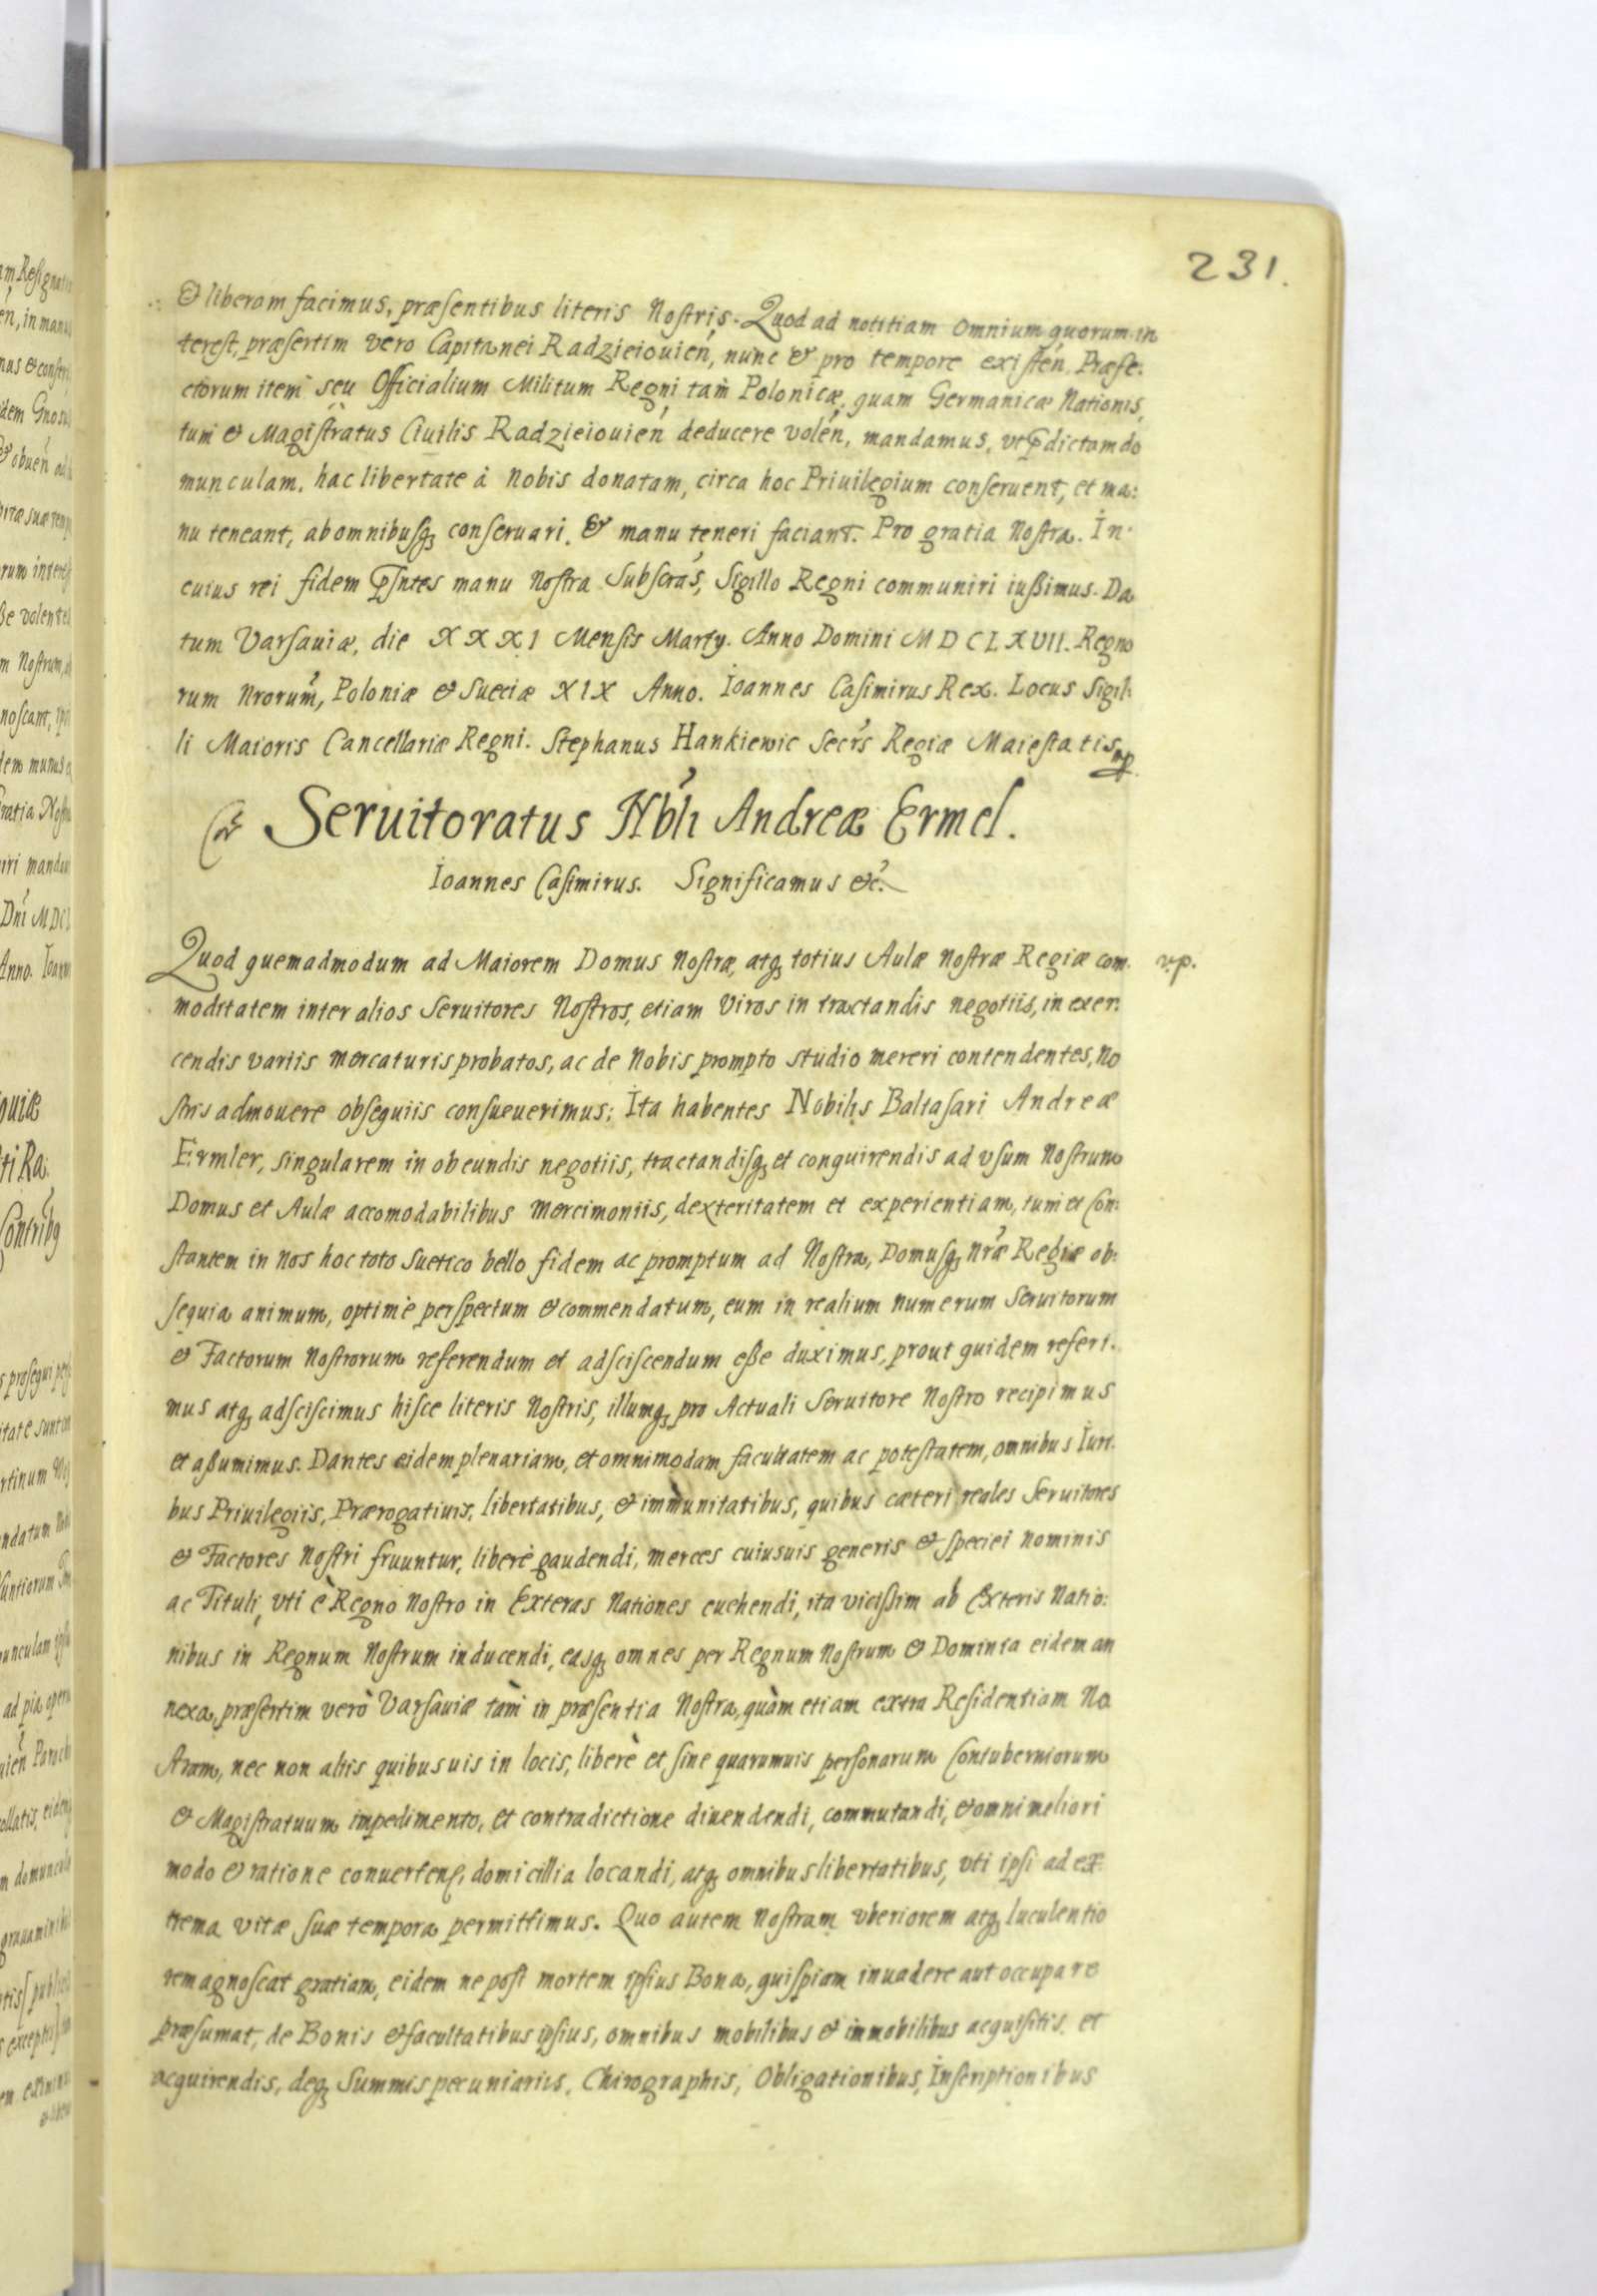 231.
& liberam facimus, præsentibus literis Nostris. Quod ad notitiam omnium quorum in
terest, præsertim vero Capitanei Radzieiouień, nunc & pro tempore existeń, Præfe:
ctorum item seu Officialium Militum Regni tam Polonicæ, quam Germanicæ Nationis,
tum & Magistratus Ciuilis Radzieiouień deducere voleń, mandamus, vt p̃dictam do
munculam, hac libertate à Nobis donatam, circa hoc Priuilegium conseruent, et ma:
nu teneant, ab omnibusq; conseruari, & manu teneri faciant. Pro gratia Nostra. In
cuius rei fidem p̃sntes manu Nostra Subscras, Sigillo Regni communiri iussimus. Da
tum Varsauiæ, die XXXI Mensis Marty. Anno Domini MDCLXVII. Regno
rum Nrorum, Poloniæ & Sueciæ XIX Anno. Ioannes Casimirus Rex. Locus Sigil:
li Maioris Cancellariæ Regni. Stephanus Hankiewic Secrs Regiæ Maiestatis mp
Seruitoratus Nblı Andreæ Ermel.
Ioannes Casimirus. Significamus &c.
Quod quemadmodum ad Maiorem Domus Nostræ, atq; totius Aulæ Nostræ Regiæ com: v.p.
moditatem inter alios Seruitores Nostros, etiam Viros in tractandis negotiis, in exer:
cendis variis mercaturis probatos, ac de Nobis prompto studio mereri contendentes, No
stris admouere obsequiis consueuerimus: Ita habentes Nobilis Baltasari Andreæ
Ermler, singularem in obeundis negotiis, tractandisq; et conquirendis ad vsum Nostrum
Domus et Aulæ accomodabilibus mercimoniis, dexteritatem et experientiam, tum et Con:
stantem in nos hoc toto Suetico bello fidem ac promptum ad Nostra, Domusq; nræ Regiæ ob:
sequia animum, optimè perspectum & commendatum, eum in realium numerum Seruitorum
& Factorum Nostrorum referendum et adsciscendum esse duximus, prout quidem referi:
mus atq; adsciscimus hisce literis Nostris, illumq; pro Actuali Seruitore Nostro recipimus
et assumimus. Dantes eidem plenariam, et omnimodam facultatem ac potestatem, omnibus Iuri:
bus Priuilegiis, Prærogatiuis, libertatibus, & immunitatibus, quibus cæteri reales Seruitores
& Factores Nostri fruuntur, liberè gaudendi, merces cuiusuis generis & speciei nominis
ac Tituli, vti è Regno Nostro in Exteras Nationes euehendi, ita vicissim ab Exteris Natio:
nibus in Regnum Nostrum inducendi, easq; omnes per Regnum Nostrum & Dominia eidem an
nexa, præsertim verò Varsauiæ tàm in præsentia Nostra, quàm etiam extra Residentiam No
stram, nec non aliis quibusuis in locis, liberè et sine quarumuis personarum Contuberniorum
& Magistratuum impedimento, et contradictione diuendendi, commutandi, & omni meliori
modo & ratione conuertenḑ, domicillia locandi, atq; omnibus libertatibus, vti ipsi ad ex
trema vitæ suæ tempora permittimus. Quo autem Nostram vberiorem atq; luculentio
rem agnoscat gratiam, eidem ne post mortem ipsius Bona, quispiam inuadere aut occupare
præsumat, de Bonis & facultatibus ipsius, omnibus mobilibus & immobilibus acquisitis et
acquirendis, deq; Summis pecuniariis, Chirographis, Obligationibus, Inscriptionibus